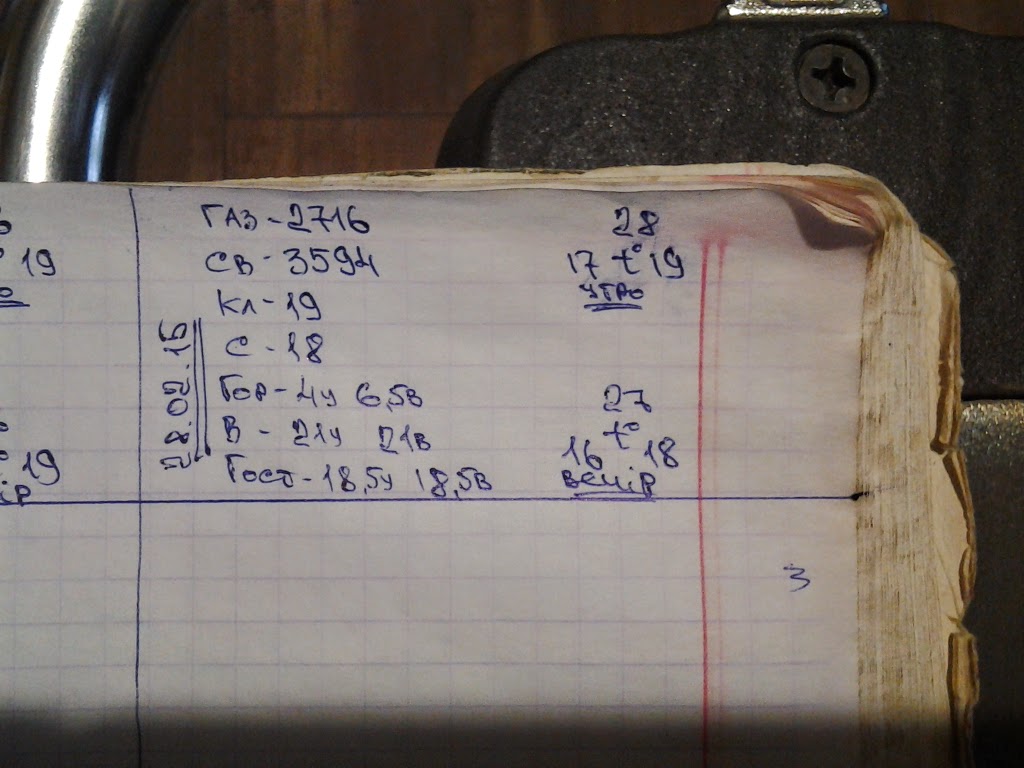 ГАЗ - 2716
СВ - 3594
КЛ - 19
С - 18
Гор - 4у 6,5в
В - 21у 21в
Гост - 18,5у 18,5в
28.02.15
28
17 t° 19
утро
27
t°
16 18
вечір
19
19
ір
3